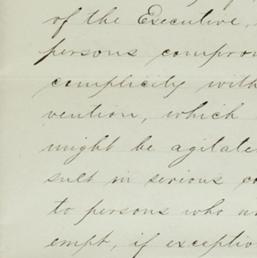 of the Executive,
persons compro
complicity with
vention, which
might be agitate
sult in serious co
to persons who w
empt, if exceptio